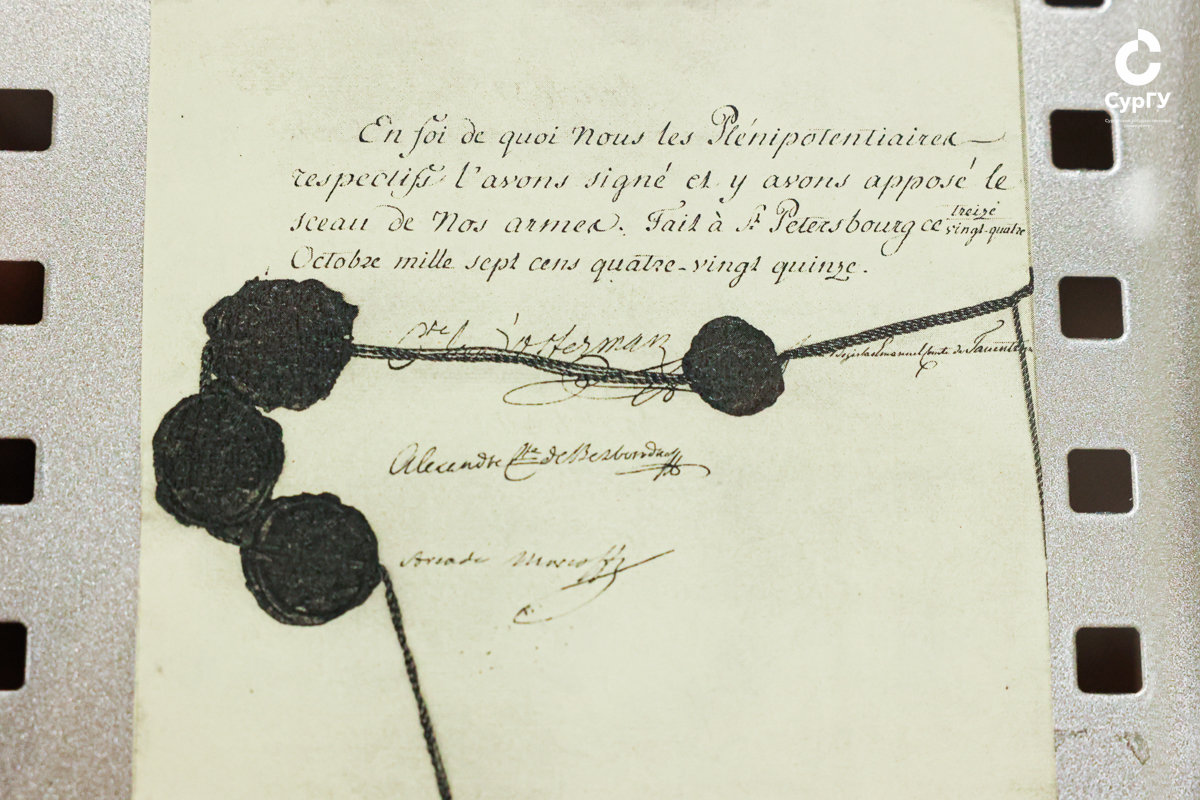 СурГУ
En foi de quoi Nous les Plénipotentiaires
respectifs l'avons signé et y avons apposé le
sceau de Nos armes. Fait à St Petersbourg ce treize / vingt-quatre
Octobre mille sept cens quatre-vingt quinze.
Cte d'Osterman
Emanuel Comte de Tauentzien
Alexandre Cte de Besborodko
Arcade Morcoff